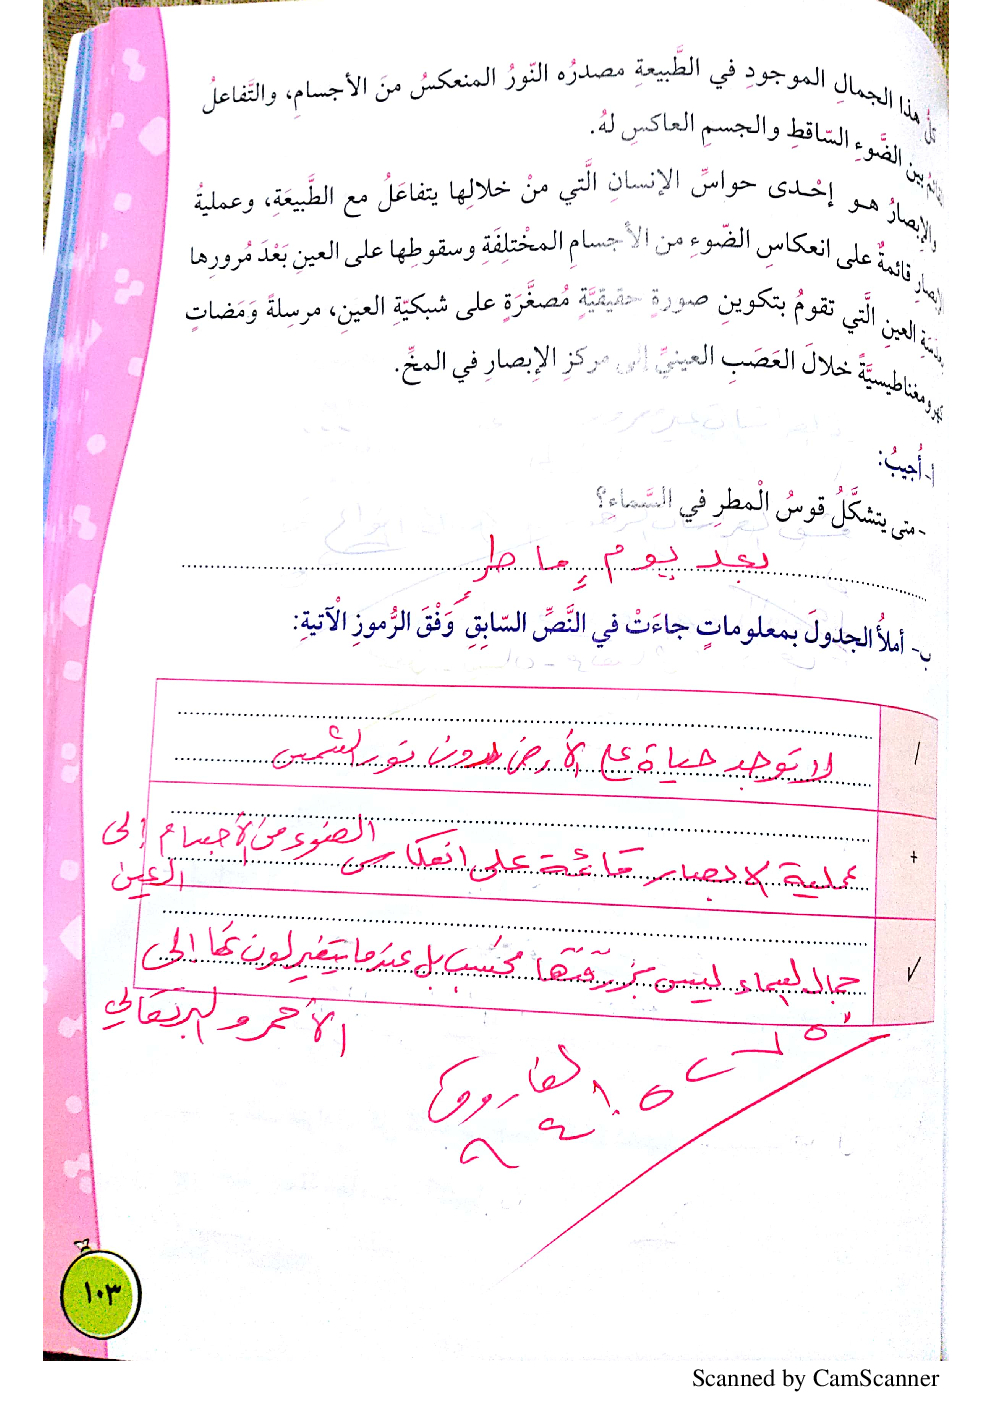 كلُّ هذا الجمالِ الموجودِ في الطَّبيعةِ مصدرُه النّورُ المنعكسُ منَ الأجسامِ، والتَّفاعلُ
القائمُ بين الضَّوءِ السّاقطِ والجسمِ العاكسِ لهُ.
والإبصارُ هو إحْدى حواسِّ الإنسانِ الَّتي منْ خلالِها يتفاعَلُ مع الطَّبيعَةِ، وعمليةُ
الإبصارِ قائمةٌ على انعكاسِ الضّوءِ من الأجسامِ المخْتلِفَةِ وسقوطِها على العينِ بَعْدَ مُرورِها
بعدَسَةِ العينِ الَّتي تقومُ بتكوينِ صورةٍ حقيقيَّةٍ مُصغَّرَةٍ على شبكيّةِ العينِ، مرسِلةً وَمَضاتٍ
كهرومغناطيسيَّةً خلالَ العَصَبِ العينيِّ إلى مركزِ الإبصارِ في المخِّ.
أ- أُجيبُ:
- متى يتشكَّلُ قوسُ الْمطرِ في السَّماءِ؟
بعد يومٍ ماطرٍ
ب- أملأُ الجدولَ بمعلوماتٍ جاءَتْ في النَّصِّ السّابِقِ وَفْقَ الرُّموزِ الْآتيةِ:
/ لا توجد حياة على الأرض بدون نور الشمس
+ عملية الابصار قائمة على انعكاس الضوء من الأجسام إلى
العين
✓ جمال السماء ليس بزرقتها فحسب بل عندما يتغير لونها إلى
الأحمر والبرتقالي
الفاروق
١٠٣
Scanned by CamScanner